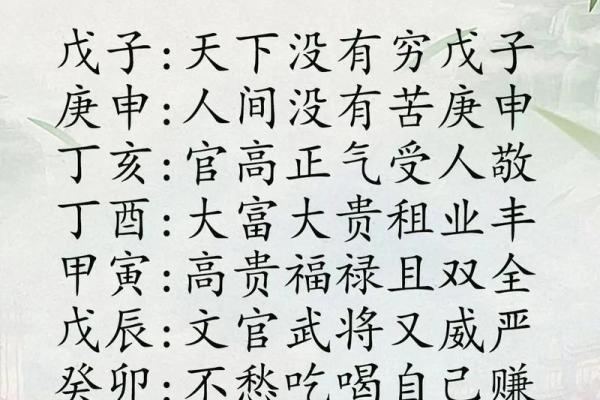 戊子:天下没有穷戊子
庚申:人间没有苦庚申
丁亥:官高正气受人敬
丁酉:大富大贵租业丰
甲寅:高贵福禄且双全
戊辰:文官武将又威严
癸卯:不愁吃喝自己赚